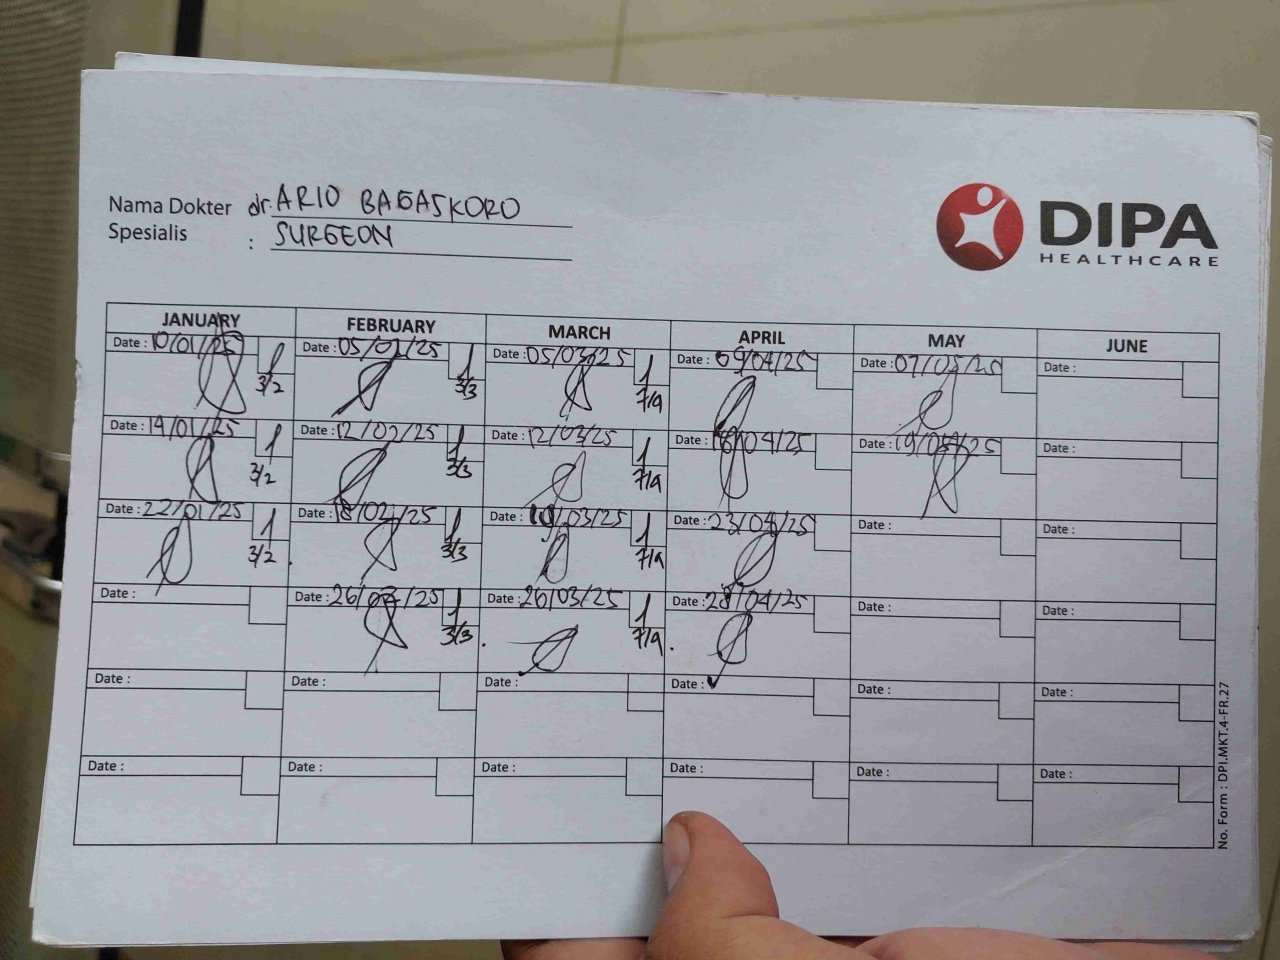 Nama Dokter dr. ARIO BAGASKORO
Spesialis : SURGEON
DIPA
HEALTHCARE
JANUARY FEBRUARY MARCH APRIL MAY JUNE
Date : 10/01/25 1 Date : 05/02/25 1 Date : 05/03/25 1 Date : 09/04/25 Date : 07/05/25 Date :
3/2 3/3 7/4
Date : 14/01/25 1 Date : 12/02/25 1 Date : 12/03/25 1 Date : 16/04/25 Date : 19/05/25 Date :
3/2 3/3 7/4
Date : 22/01/25 1 Date : 18/02/25 1 Date : 19/03/25 1 Date : 23/04/25 Date : Date :
3/2 3/3 7/4
Date : Date : 26/02/25 1 Date : 26/03/25 1 Date : 28/04/25 Date : Date :
3/3 7/4
Date : Date : Date : Date : Date : Date :
Date : Date : Date : Date : Date : Date :
No. Form : DPI.MKT.4-FR.27